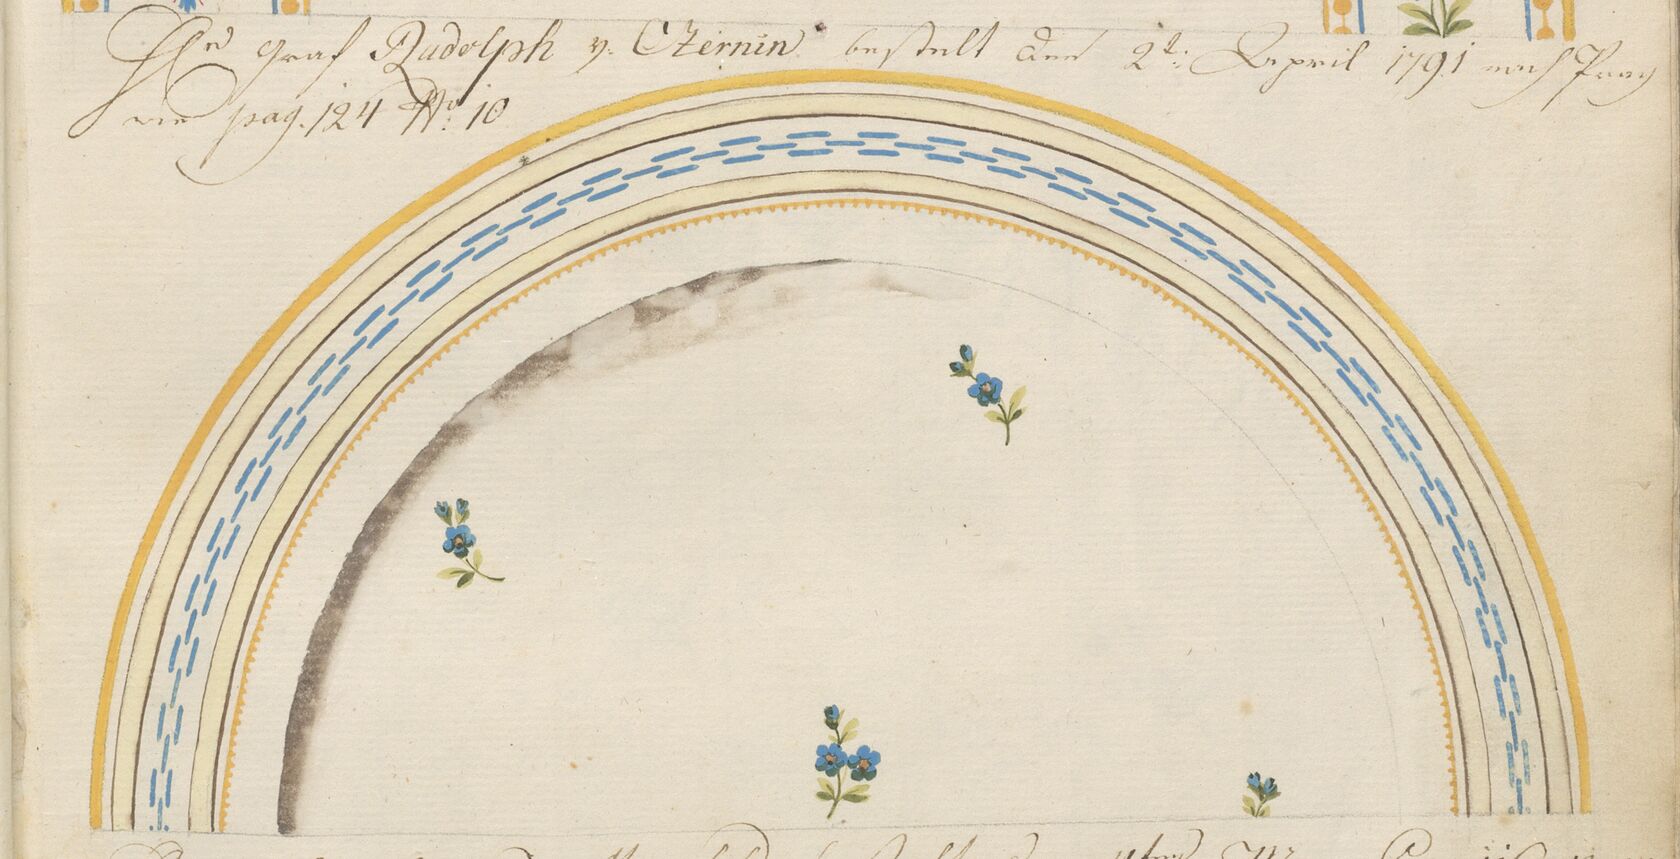 Hr Graf Rudolph v. Czernin bestelt den 2t: April 1791 nach Prag
wie pag. 124 No: 10